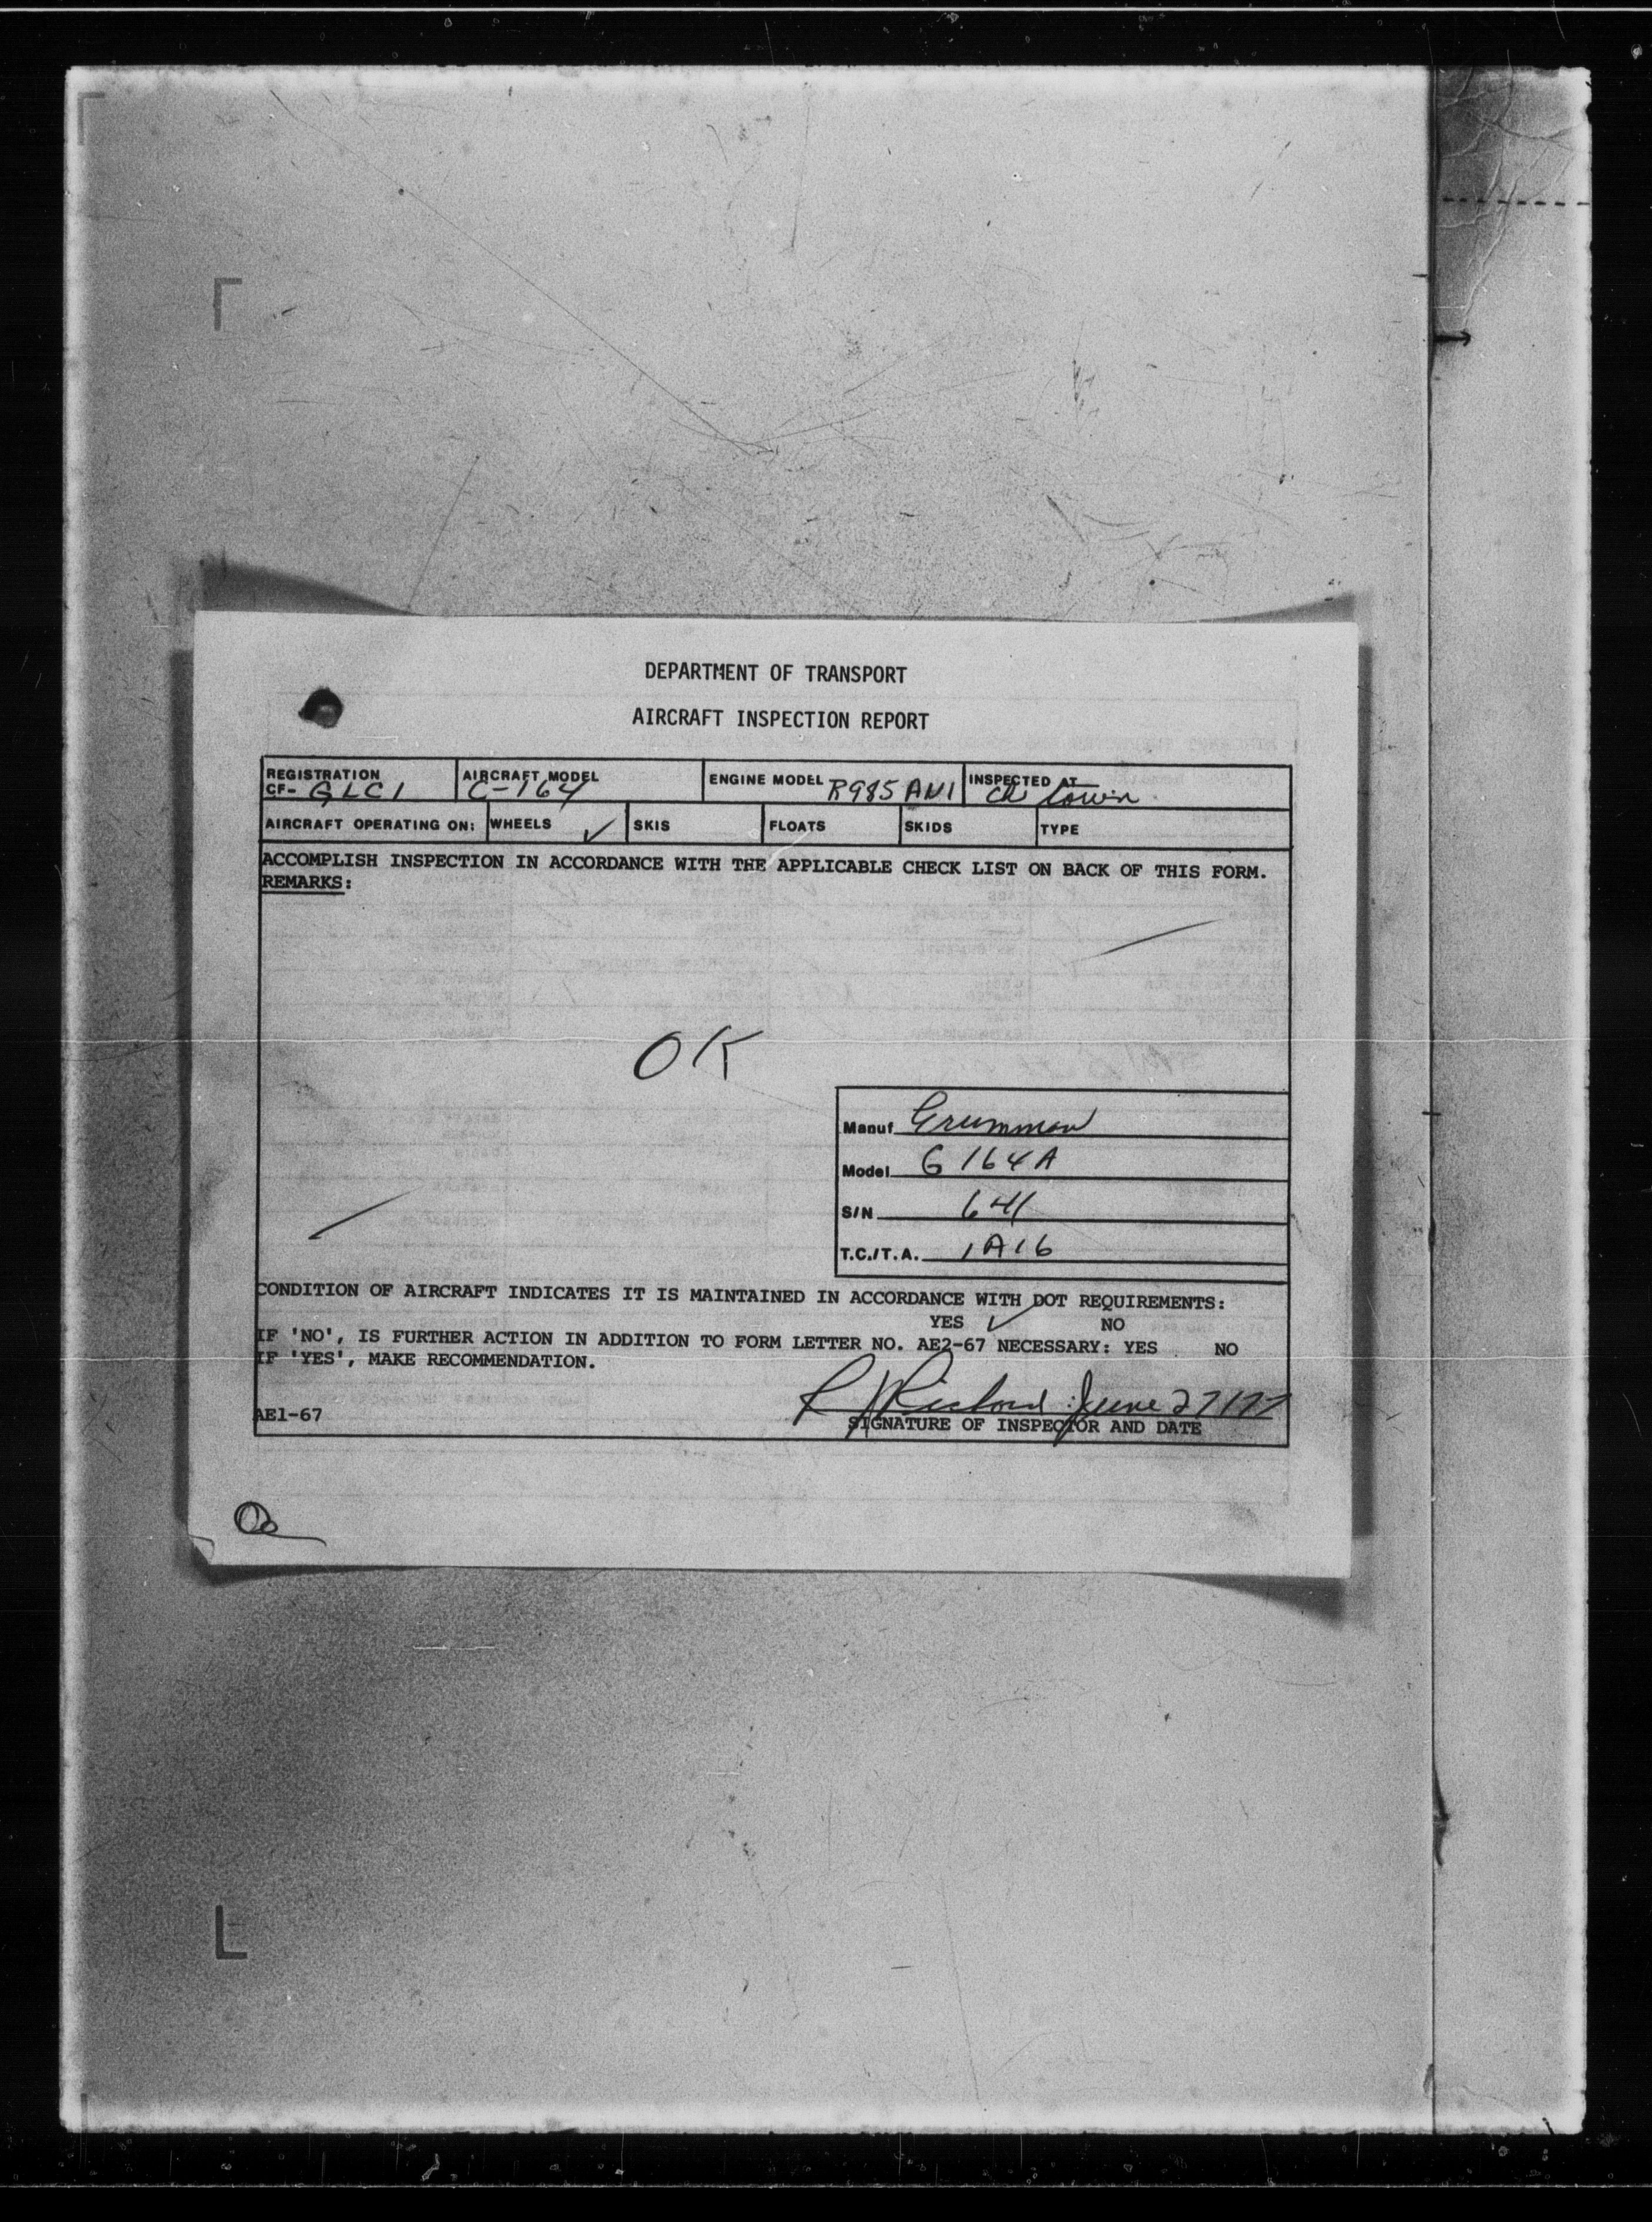 DEPARTMENT OF TRANSPORT
AIRCRAFT INSPECTION REPORT
REGISTRATION AIRCRAFT MODEL ENGINE MODEL R985 AN1 INSPECTED AT
CF- GLCI C-164 Ch'town
AIRCRAFT OPERATING ON: WHEELS ✓ SKIS FLOATS SKIDS TYPE
ACCOMPLISH INSPECTION IN ACCORDANCE WITH THE APPLICABLE CHECK LIST ON BACK OF THIS FORM.
REMARKS:
OK
Manuf Grumman
Model G 164A
S/N 641
T.C./T.A. 1A16
CONDITION OF AIRCRAFT INDICATES IT IS MAINTAINED IN ACCORDANCE WITH DOT REQUIREMENTS:
YES ✓ NO
IF 'NO', IS FURTHER ACTION IN ADDITION TO FORM LETTER NO. AE2-67 NECESSARY: YES NO
IF 'YES', MAKE RECOMMENDATION.
R J Richard June 27/77
AE1-67 SIGNATURE OF INSPECTOR AND DATE